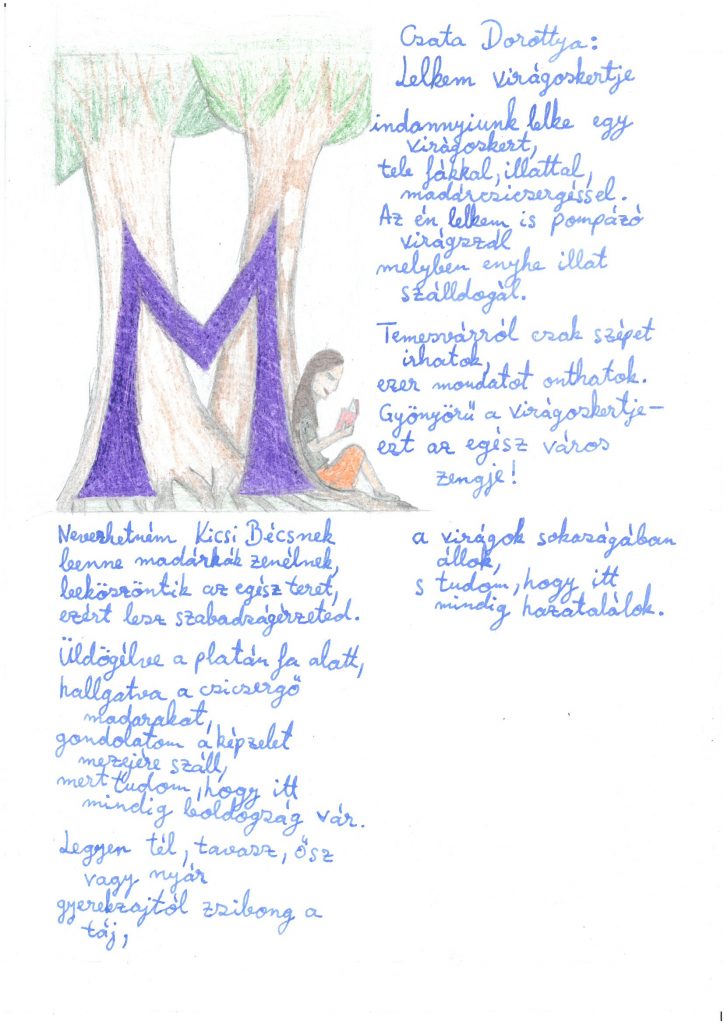 Csata Dorottya:
Lelkem virágoskertje
M
indannyiunk lelke egy
virágoskert,
tele fákkal, illattal,
madárcsicsergéssel.
Az én lelkem is pompázó
virágszál
melyben enyhe illat
szálldogál.
Temesvárról csak szépet
irhatok,
ezer mondatot onthatok.
Gyönyörű a virágoskertje-
ezt az egész város
zengje!
Nevezhetném Kicsi Bécsnek
benne madárkák zenélnek,
beköszöntik az egész teret,
ezért lesz szabadságérzeted.
Üldögélve a platán fa alatt,
hallgatva a csicsergő
madarakat,
gondolatom a képzelet
mezejére száll,
mert tudom, hogy itt
mindig boldogság vár.
Legyen tél, tavasz, ősz
vagy nyár
gyerekzajtól zsibong a
táj,
a virágok sokaságában
állok,
s tudom, hogy itt
mindig hazatalálok.